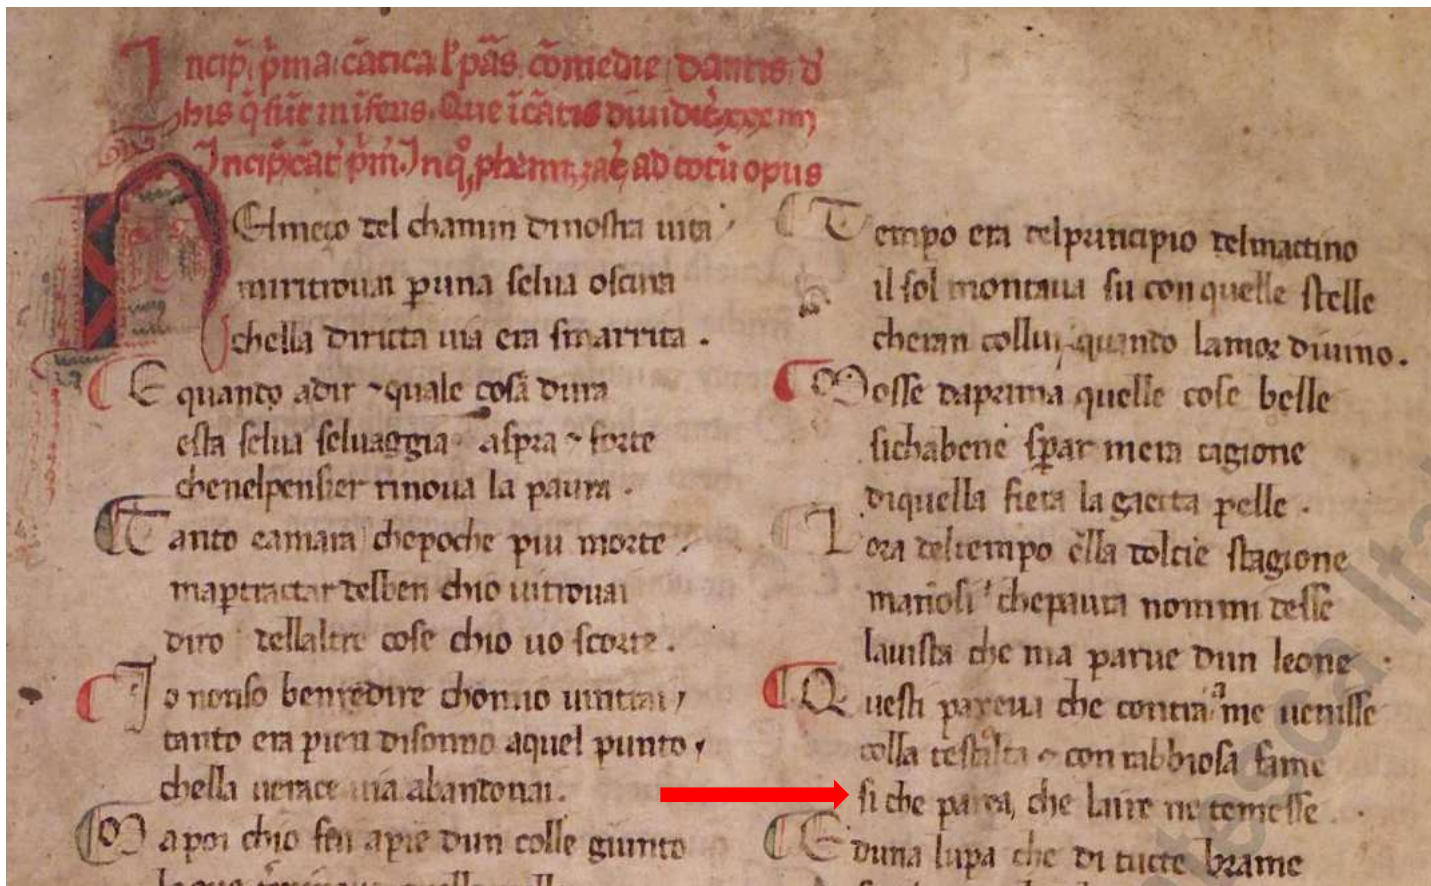 Incip̄ p̄ma cātica l'pās cōmedie dantis d'
his q̄ sūt inīferis. Que ī cātis diuidit̄ xxxiiij
Incip̄ cāt' p̄m̄. In qͦ phemiʒat ad totū opus
NElmeço del chamin dinostra uita
miritrouai ꝑuna selua oscura
chella diritta uia era smarrita .
E quanto adir ⁊ quale cosa dura
esta selua seluaggia aspra ⁊ forte
chenelpensier rinoua la paura .
Tanto eamara chepoche piu morte .
maꝑtractar delben chio uitrouai
diro dellaltre cose chio uo scorte .
Io nonso benredire chomio uintrai
tanto era pien disonno aquel punto
chella uerace uia abandonai .
Ma poi chio fui apie dun colle giunto
Tempo era delprincipio delmattino
il sol montaua su con quelle stelle
cheran collui quando lamor diuino .
Mosse daprima quelle cose belle
sichabene sꝑar mera cagione
diquella fiera la gaetta pelle .
Lora deltempo ⁊lla dolcie stagione
manosi chepaura nonmi desse
lauista che ma parue dun leone
Questi parena che contra me uenisse
colla testalta ⁊ con rabbiosa fame
si che parea, che laire ne temesse .
E duna lupa che di tucte brame